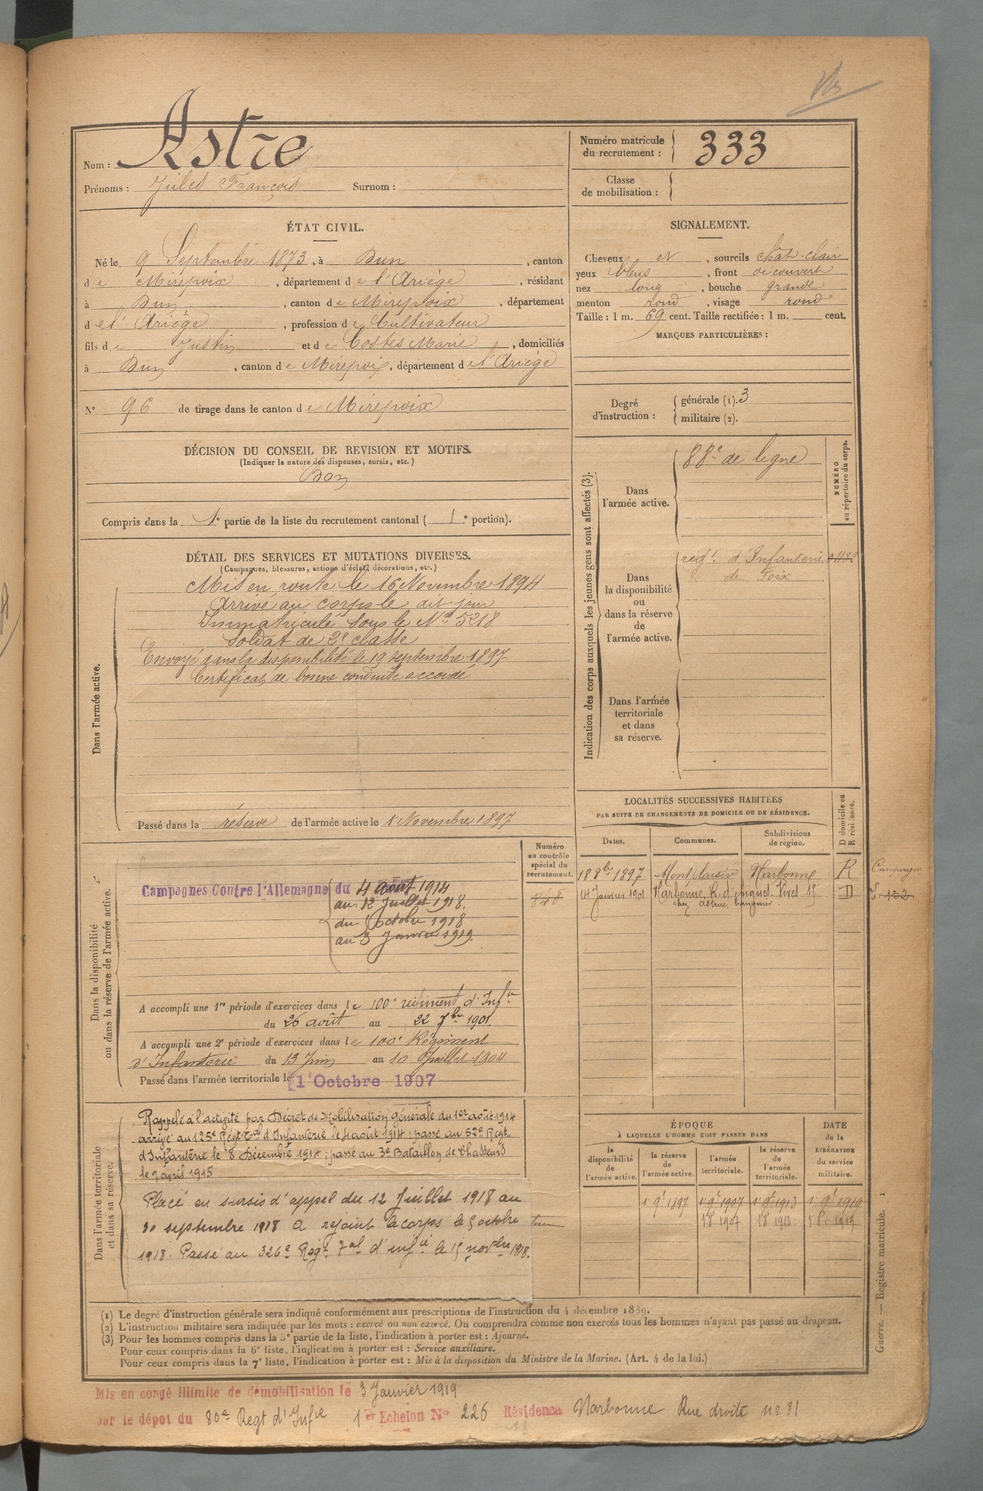 Nom : Astre
Prénoms : Jules François Surnom :
Numéro matricule du recrutement : 333
Classe de mobilisation :
ÉTAT CIVIL.
Né le 9 Septembre 1873, à Dun, canton
de Mirepoix, département de l'Ariège, résidant
à Dun, canton de Mirepoix, département
de l'Ariège, profession de Cultivateur
fils de Justin et de Costes Marie, domiciliés
à Dun, canton de Mirepoix, département de l'Ariège
N° 96 de tirage dans le canton de Mirepoix
SIGNALEMENT.
Cheveux et, sourcils chât. clair
yeux bleus, front découvert
nez long, bouche grande
menton rond, visage rond
Taille : 1 m. 69 cent. Taille rectifiée : 1 m. cent.
MARQUES PARTICULIÈRES :
Degré d'instruction : générale (1). 3
militaire (2).
DÉCISION DU CONSEIL DE REVISION ET MOTIFS.
(Indiquer la nature des dispenses, sursis, etc.)
Bon
Compris dans la 1e partie de la liste du recrutement cantonal ( 1e portion).
DÉTAIL DES SERVICES ET MUTATIONS DIVERSES.
(Campagnes, blessures, actions d'éclat, décorations, etc.)
Dans l'armée active.
Mis en route le 16 Novembre 1894
Arrivé au corps le dit jour
Immatriculé sous le N° 5218
Soldat de 2e classe
Envoyé dans la disponibilité le 19 septembre 1897
Certificat de bonne conduite accordé
Passé dans la réserve de l'armée active le 1 Novembre 1897
Indication des corps auxquels les jeunes gens sont affectés (3).
Dans l'armée active.
88e de ligne
NUMÉRO au répertoire du corps.
Dans la disponibilité ou dans la réserve de l'armée active.
régt. d'Infanterie
de Foix
Dans l'armée territoriale et dans sa réserve.
LOCALITÉS SUCCESSIVES HABITÉES
PAR SUITE DE CHANGEMENTS DE DOMICILE OU DE RÉSIDENCE.
Dates. Communes. Subdivisions de région. D domicile ou R résidence.
18 8bre 1897 Montclarisir Narbonne R
14 Janvier 1901 Narbonne D
Dans la disponibilité ou dans la réserve de l'armée active.
Numéro au contrôle spécial du recrutement.
Campagnes Contre l'Allemagne du 4 août 1914
au 12 Juillet 1918.
du 5 octobre 1918
au 3 Janvier 1919.
A accompli une 1re période d'exercices dans le 100e régiment d'Infie
du 26 août au 22 7bre 1901.
A accompli une 2e période d'exercices dans le 100e Régiment
d'Infanterie du 13 Juin au 10 Juillet 1904
Passé dans l'armée territoriale le 1 Octobre 1907
Dans l'armée territoriale et dans sa réserve.
Rappelé à l'activité par Décret de Mobilisation Générale du 1er août 1914
arrivé au 125e Régt Tal d'Infanterie le 4 août 1914 ; passé au 52e Régt.
d'Infanterie le 8 Décembre 1914 ; passé au 3e Bataillon de Chasseurs
le 9 avril 1915
Placé en sursis d'appel du 12 Juillet 1918 au
30 septembre 1918 a rejoint le corps le 5 octobre
1918. Passé au 326e Régt. Tal d'infie le 15 novbre 1918.
ÉPOQUE
À LAQUELLE L'HOMME DOIT PASSER DANS
la disponibilité de l'armée active. la réserve de l'armée active. l'armée territoriale. la réserve de l'armée territoriale.
DATE de la LIBÉRATION du service militaire.
1 9e 1897 1 9e 1907 1 9e 1913 1 9e 1919
1 8e 1907 1 8e 1913 1 8e 1919
Guerre. — Registre matricule. 1
(1) Le degré d'instruction générale sera indiqué conformément aux prescriptions de l'instruction du 4 décembre 1889.
(2) L'instruction militaire sera indiquée par les mots : exercé ou non exercé. On comprendra comme non exercés tous les hommes n'ayant pas passé au drapeau.
(3) Pour les hommes compris dans la 5e partie de la liste, l'indication à porter est : Ajourné.
Pour ceux compris dans la 6e liste, l'indication à porter est : Service auxiliaire.
Pour ceux compris dans la 7e liste, l'indication à porter est : Mis à la disposition du Ministre de la Marine. (Art. 4 de la loi.)
Mis en congé illimité de démobilisation le 3 Janvier 1919
par le dépôt du 80e Régt d'Infie 1er Echelon N° 226 Résidence Narbonne Rue droite n° 81